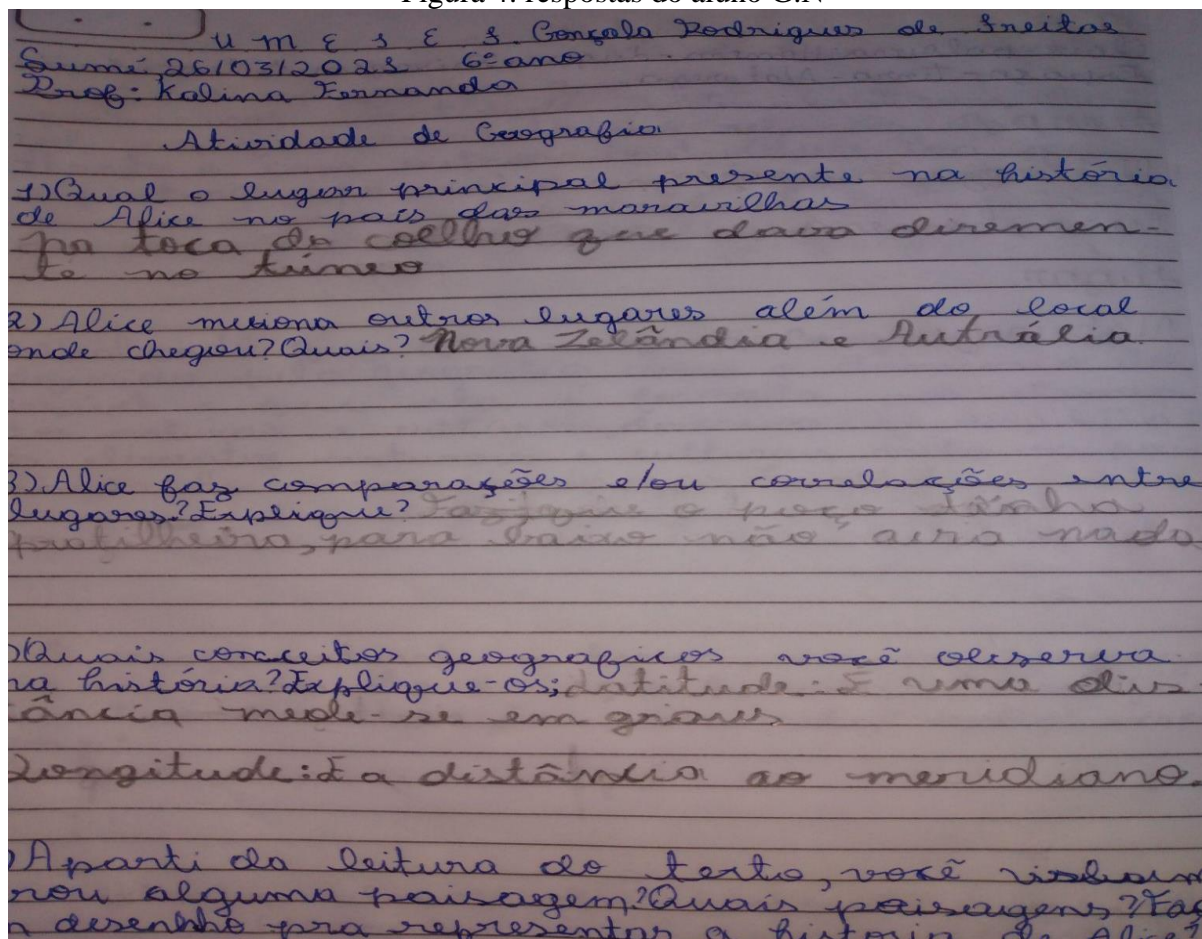 Figura 4: respostas do aluno G.N
U M E I E F Gonçalo Rodrigues de Freitas
Sumé, 26/03/2023 6º ano
Prof: Kalina Fernanda
Atividade de Geografia
1) Qual o lugar principal presente na história
de Alice no país das maravilhas
na toca do coelho que dava diremen-
te no túneo
2) Alice mesiona outros lugares além do local
onde chegou? Quais? Nova Zelândia e Autrália.
3) Alice faz comparações e/ou correlações entre
lugares? Explique? que o poço
para baixo não nada
)Quais conceitos geograficos você observa
na história? Explique-os; Latitude: É uma dis-
tância mede-se em graus
Longitude: É a distância ao meridiano.
)Aparti da leitura do texto, você vislum
rou alguma paisagem? Quais paisagens? Faç
desenho pra representar a historia de Alice?